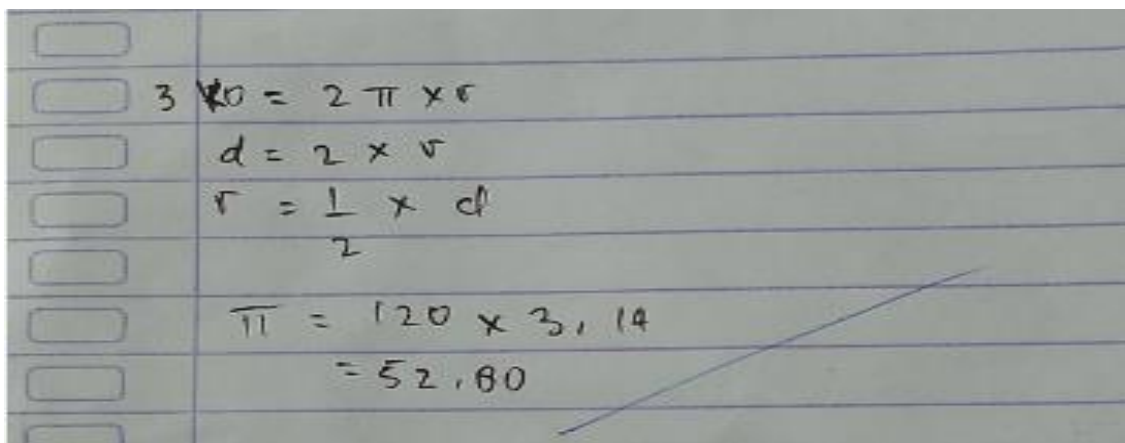 3 KO = 2 π x r
d = 2 x r
r = 1/2 x d
π = 120 x 3,14
= 52,80